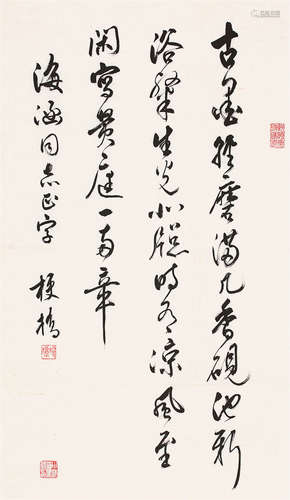 古墨轻磨满几香砚池新
浴粲生光北窗时有凉风至
闲写黄庭一两章
海涵同志正字
梗桥